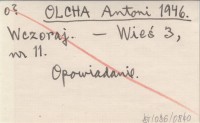 OLCHA Antoni 1946.
Wczoraj. – Wieś 3,
nr 11.
Opowiadanie.